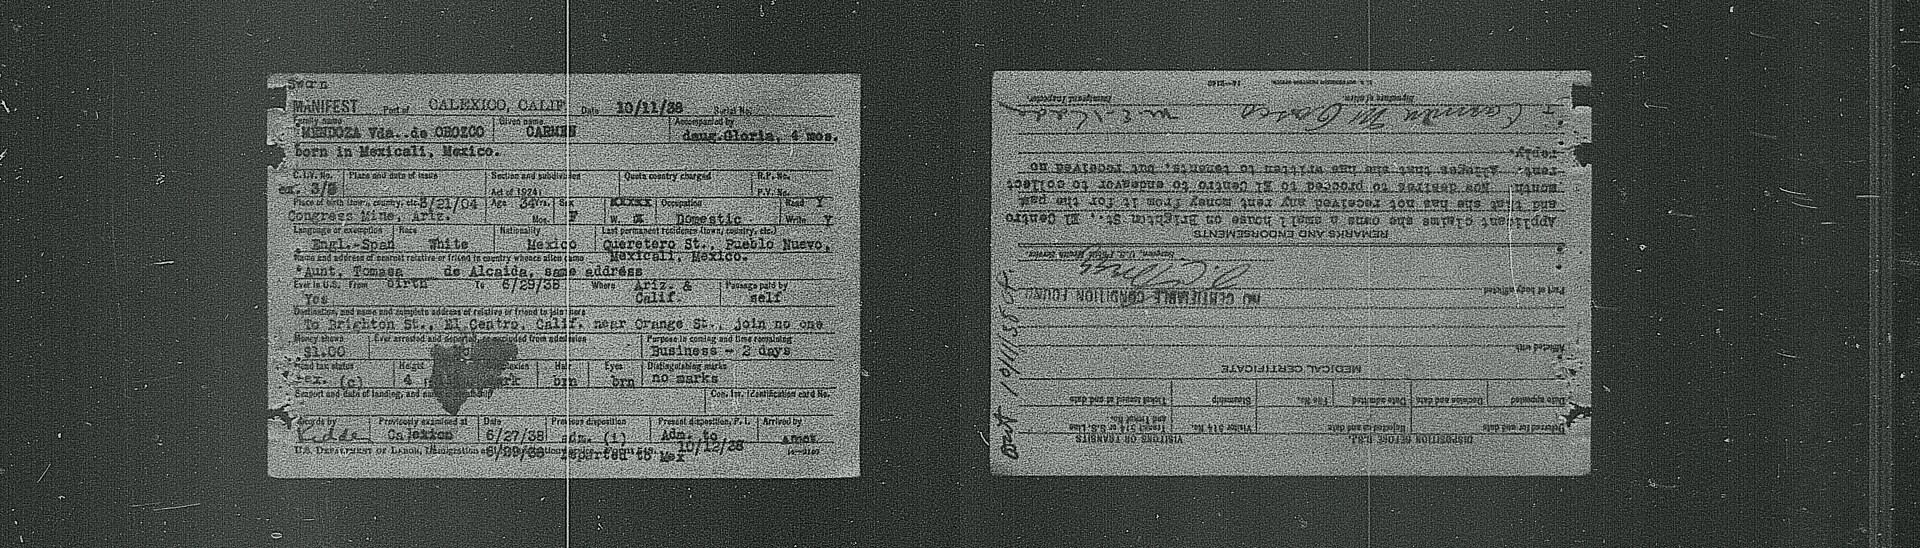 Sworn
MANIFEST Port of CALEXICO, CALIF Date 10/11/38 Serial No.
Family name Given name Accompanied by
MENDOZA Vda. de OROZCO CARMEN daug.Gloria, 4 mos.
born in Mexicali, Mexico.
C.I.V. No. Place and date of issue Section and subdivision Quota country charged R.P. No.
ex. 3/8 Act of 1924: P.V. No.
Place of birth (town, country, etc.) 3/21/04 Age 34 Yrs. Sex XXXXX Occupation Read Y
Congress Mine, Ariz. Mos. F W. Domestic Write Y
Language or exemption Race Nationality Last permanent residence (town, country, etc.)
Engl.-Span White Mexico Queretero St., Pueblo Nuevo,
Name and address of nearest relative or friend in country whence alien came Mexicali, Mexico.
*Aunt, Tomasa de Alcaida, same address
Ever in U.S. From birth To 6/29/38 Where Ariz. & Passage paid by
Yes Calif. self
Destination, and name and complete address of relative or friend to join there
To Brighton St., El Centro, Calif. near Orange St., join no one
Money shown Ever arrested and deported, or excluded from admission Purpose in coming and time remaining
$1.00 No Business - 2 days
Head tax status Height Complexion Hair Eyes Distinguishing marks
ex. (c) 4 dark brn brn no marks
Seaport and date of landing, and name of steamship Con. Inv. Identification card No.
Records by Previously examined at Date Previous disposition Present disposition, P. I. Arrived by
Calexico 6/27/38 adm. (1) Adm. to
U.S. DEPARTMENT OF LABOR, Immigration 6/29/38 departed to Mex 10/12/38
DISPOSITION BEFORE B.S.I. VISITORS OR TRANSITS
Deferred for and date Rejected as and date Visitor 514 No. Transit 514 or U.S. Line and Transit No.
Date appealed Decision and date Date admitted File No. Steamship Ticket issued at and date
MEDICAL CERTIFICATE
Afflicted with
NO CERTIFIABLE CONDITION FOUND
Part of body affected
Surgeon, U.S. Public Health Service.
REMARKS AND ENDORSEMENTS
Applicant claims she owns a small house on Brighton St., El Centro
and that she has not received any rent money from it for the past
month. Now desires to proceed to El Centro to endeavor to collect
rent. Alleges that she has written to tenants, but received no
reply.
Carmen M Orozco
Signature of alien. Immigrant Inspector.
U. S. GOVERNMENT PRINTING OFFICE
Out 10/11/38